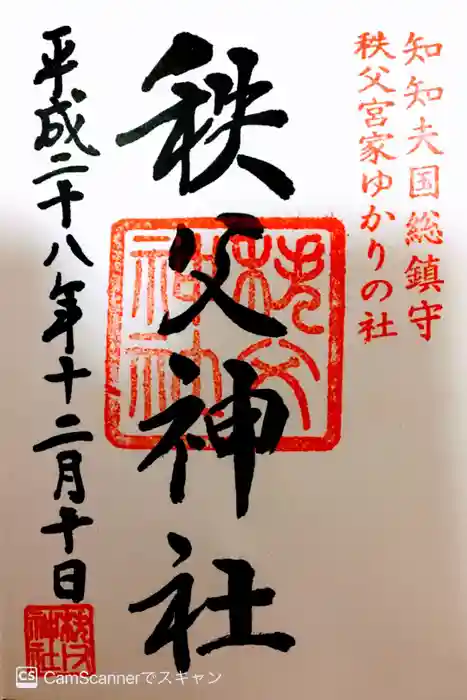 知知夫国総鎮守
秩父宮家ゆかりの社
秩父神社
秩父
神社
平成二十八年十二月十日
秩父
神社
CS CamScannerでスキャン